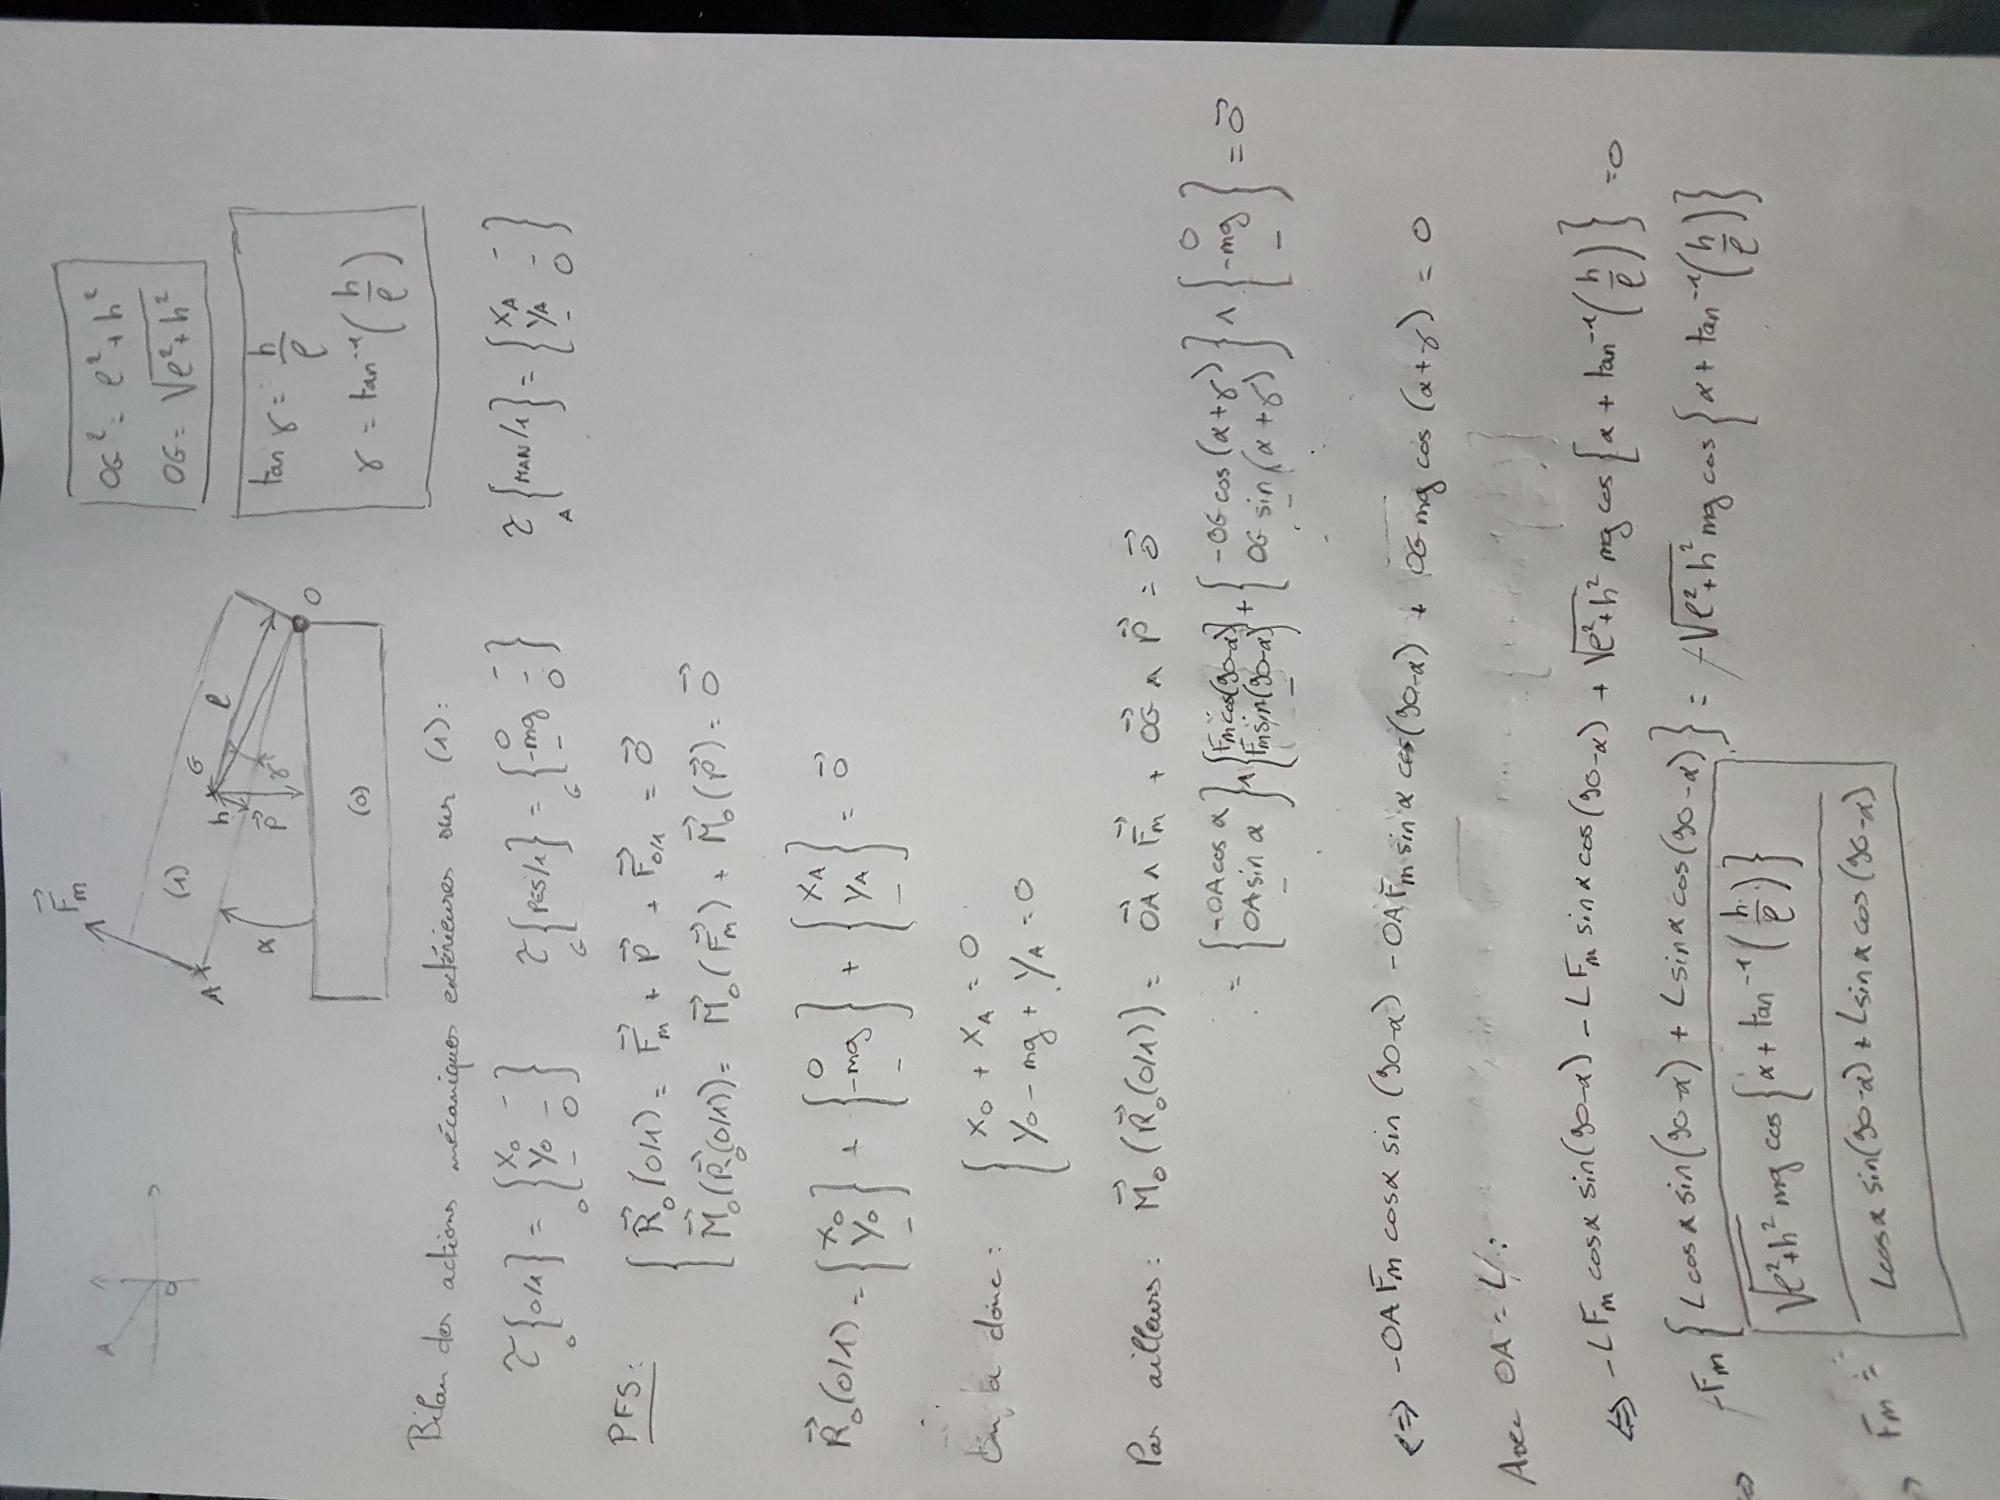 OG² = l² + h²
OG = √(l² + h²)
tan γ = h/l
γ = tan⁻¹(h/l)
A
O
F⃗m
A
(1)
α
h
G
P⃗
γ
l
O
(0)
Bilan des actions mécaniques extérieures sur (1) :
τ{0/1} = O{X₀ - / Y₀ - / - 0}
τ{PES/1} = G{0 - / -mg - / - 0}
τ{MAN/1} = A{X_A - / Y_A - / - 0}
PFS : { R⃗₀(0/1) = F⃗m + P⃗ + F⃗0/1 = 0⃗
M⃗₀(R⃗₀(0/1)) = M⃗₀(F⃗m) + M⃗₀(P⃗) = 0⃗
R⃗₀(0/1) = {X₀ / Y₀ / -} + {0 / -mg / -} + {X_A / Y_A / -} = 0⃗
a donc : { X₀ + X_A = 0
Y₀ - mg + Y_A = 0
Par ailleurs : M⃗₀(R⃗₀(0/1)) = O⃗A ∧ F⃗m + O⃗G ∧ P⃗ = 0⃗
= {-OA cos α / OA sin α / -} ∧ {Fm cos(90-α) / Fm sin(90-α) / -} + {-OG cos(α+γ) / OG sin(α+γ) / -} ∧ {0 / -mg / -} = 0⃗
<=> -OA Fm cosα sin(90-α) - OA Fm sinα cos(90-α) + OG mg cos(α+γ) = 0
Avec OA = L :
<=> -LFm cosα sin(90-α) - LFm sinα cos(90-α) + √(l²+h²) mg cos{α + tan⁻¹(h/l)} = 0
<=> Fm {L cosα sin(90-α) + L sinα cos(90-α)} = √(l²+h²) mg cos{α + tan⁻¹(h/l)}
Fm = √(l²+h²) mg cos{α + tan⁻¹(h/l)} / L cosα sin(90-α) + L sinα cos(90-α)